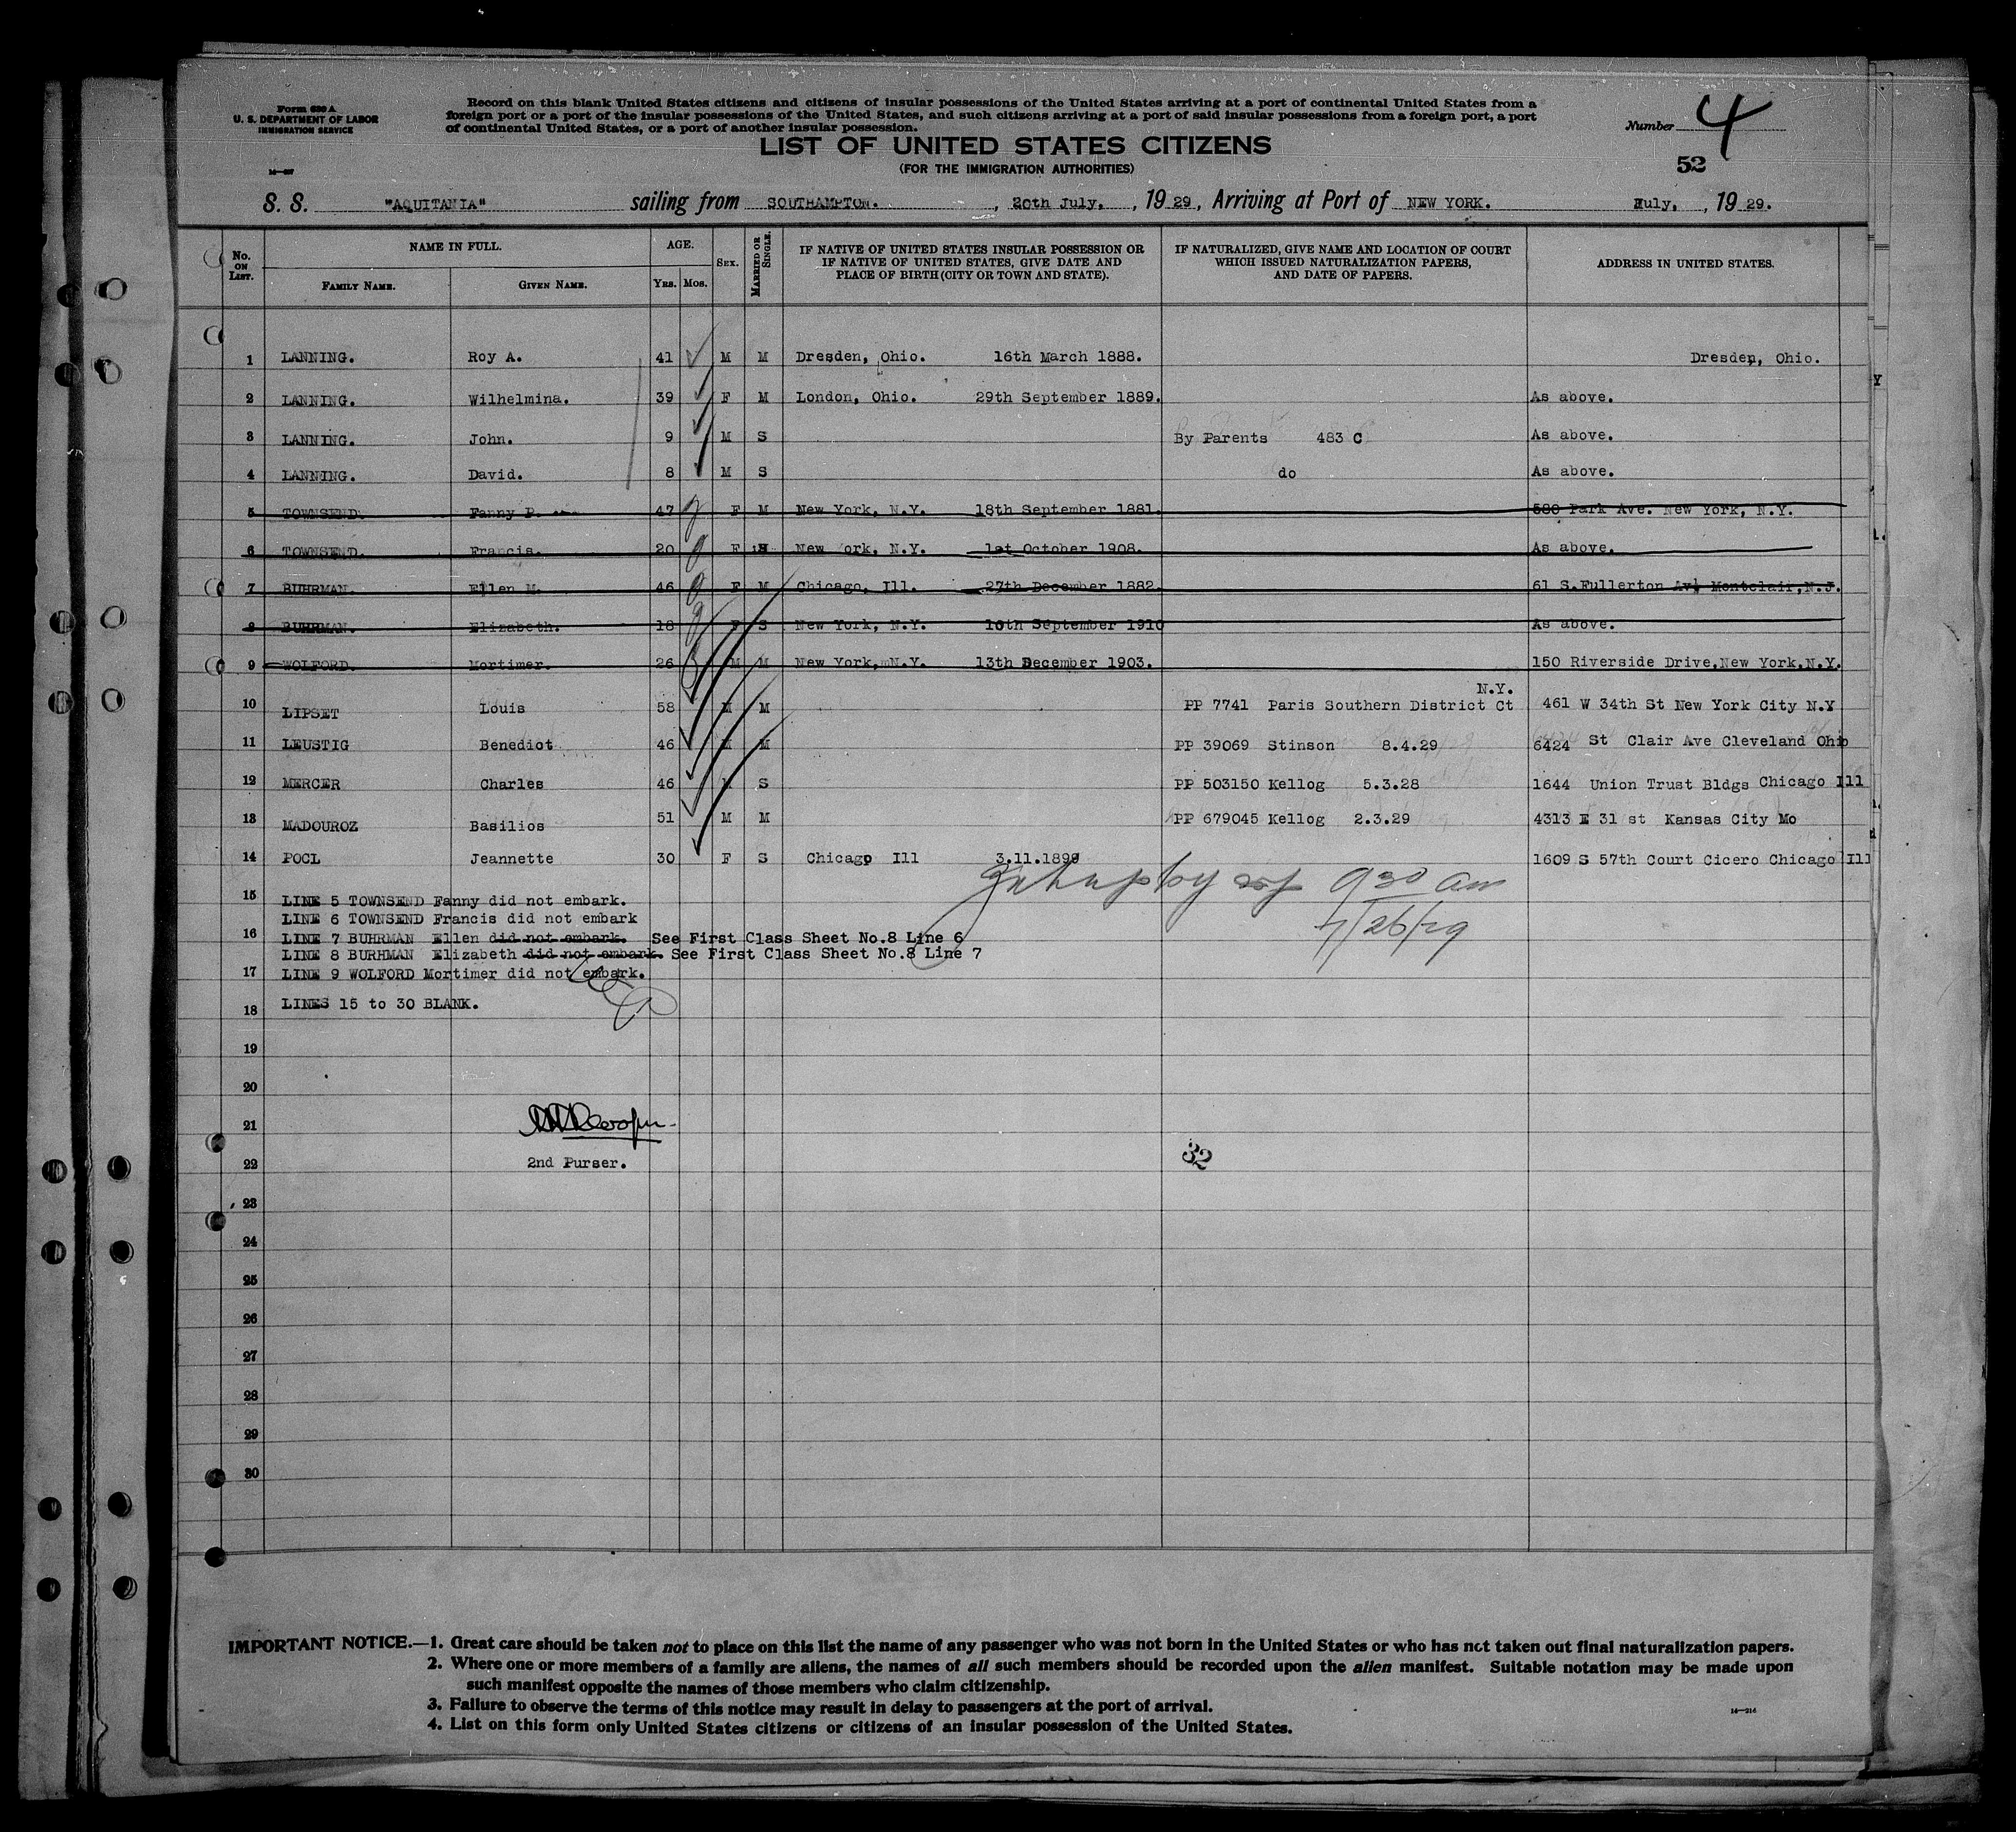 Form 630 A
U. S. DEPARTMENT OF LABOR
IMMIGRATION SERVICE
Record on this blank United States citizens and citizens of insular possessions of the United States arriving at a port of continental United States from a
foreign port or a port of the insular possessions of the United States, and such citizens arriving at a port of said insular possessions from a foreign port, a port
of continental United States, or a port of another insular possession.
Number 4
LIST OF UNITED STATES CITIZENS
(FOR THE IMMIGRATION AUTHORITIES)
52
S. S. "AQUITANIA" sailing from SOUTHAMPTON. , 20th July, , 19 29, Arriving at Port of NEW YORK. July, , 19 29.
No. ON LIST. NAME IN FULL. AGE. SEX. MARRIED OR SINGLE. IF NATIVE OF UNITED STATES INSULAR POSSESSION OR IF NATIVE OF UNITED STATES, GIVE DATE AND PLACE OF BIRTH (CITY OR TOWN AND STATE). IF NATURALIZED, GIVE NAME AND LOCATION OF COURT WHICH ISSUED NATURALIZATION PAPERS, AND DATE OF PAPERS. ADDRESS IN UNITED STATES.
FAMILY NAME. GIVEN NAME. YRS. MOS.
1 LANNING. Roy A. 41 M M Dresden, Ohio. 16th March 1888. Dresden, Ohio.
2 LANNING. Wilhelmina. 39 F M London, Ohio. 29th September 1889. As above.
3 LANNING. John. 9 M S By Parents 483 C As above.
4 LANNING. David. 8 M S do As above.
5 TOWNSEND. Fanny P. 47 F M New York, N.Y. 18th September 1881. 580 Park Ave. New York, N.Y.
6 TOWNSEND. Francis. 20 F New York, N.Y. 1st October 1908. As above.
7 BUHRMAN. Ellen M. 46 F M Chicago, Ill. 27th December 1882. 61 S.Fullerton Av. Montclair, N.J.
8 BUHRMAN. Elizabeth. 18 F S New York, N.Y. 10th September 1910 As above.
9 WOLFORD. Mortimer. 26 M M New York, N.Y. 13th December 1903. 150 Riverside Drive, New York, N.Y.
N.Y.
10 LIPSET Louis 58 M M PP 7741 Paris Southern District Ct 461 W 34th St New York City N.Y
11 LEUSTIG Benediot 46 M M PP 39069 Stinson 8.4.29 6424 St Clair Ave Cleveland Ohio
12 MERCER Charles 46 M S PP 503150 Kellog 5.3.28 1644 Union Trust Bldgs Chicago Ill
13 MADOUROZ Basilios 51 M M PP 679045 Kellog 2.3.29 4313 E 31 st Kansas City Mo
14 POCL Jeannette 30 F S Chicago Ill 3.11.1899 1609 S 57th Court Cicero Chicago Ill
9 30 am
7/26/29
15 LINE 5 TOWNSEND Fanny did not embark.
LINE 6 TOWNSEND Francis did not embark
16 LINE 7 BUHRMAN Ellen did not embark. See First Class Sheet No.8 Line 6
LINE 8 BURHMAN Elizabeth did not embark. See First Class Sheet No.8 Line 7
17 LINE 9 WOLFORD Mortimer did not embark.
LINES 15 to 30 BLANK.
18
19
20
21
22 2nd Purser.
32
23
24
25
26
27
28
29
30
IMPORTANT NOTICE.—1. Great care should be taken not to place on this list the name of any passenger who was not born in the United States or who has not taken out final naturalization papers.
2. Where one or more members of a family are aliens, the names of all such members should be recorded upon the alien manifest. Suitable notation may be made upon
such manifest opposite the names of those members who claim citizenship.
3. Failure to observe the terms of this notice may result in delay to passengers at the port of arrival.
4. List on this form only United States citizens or citizens of an insular possession of the United States.